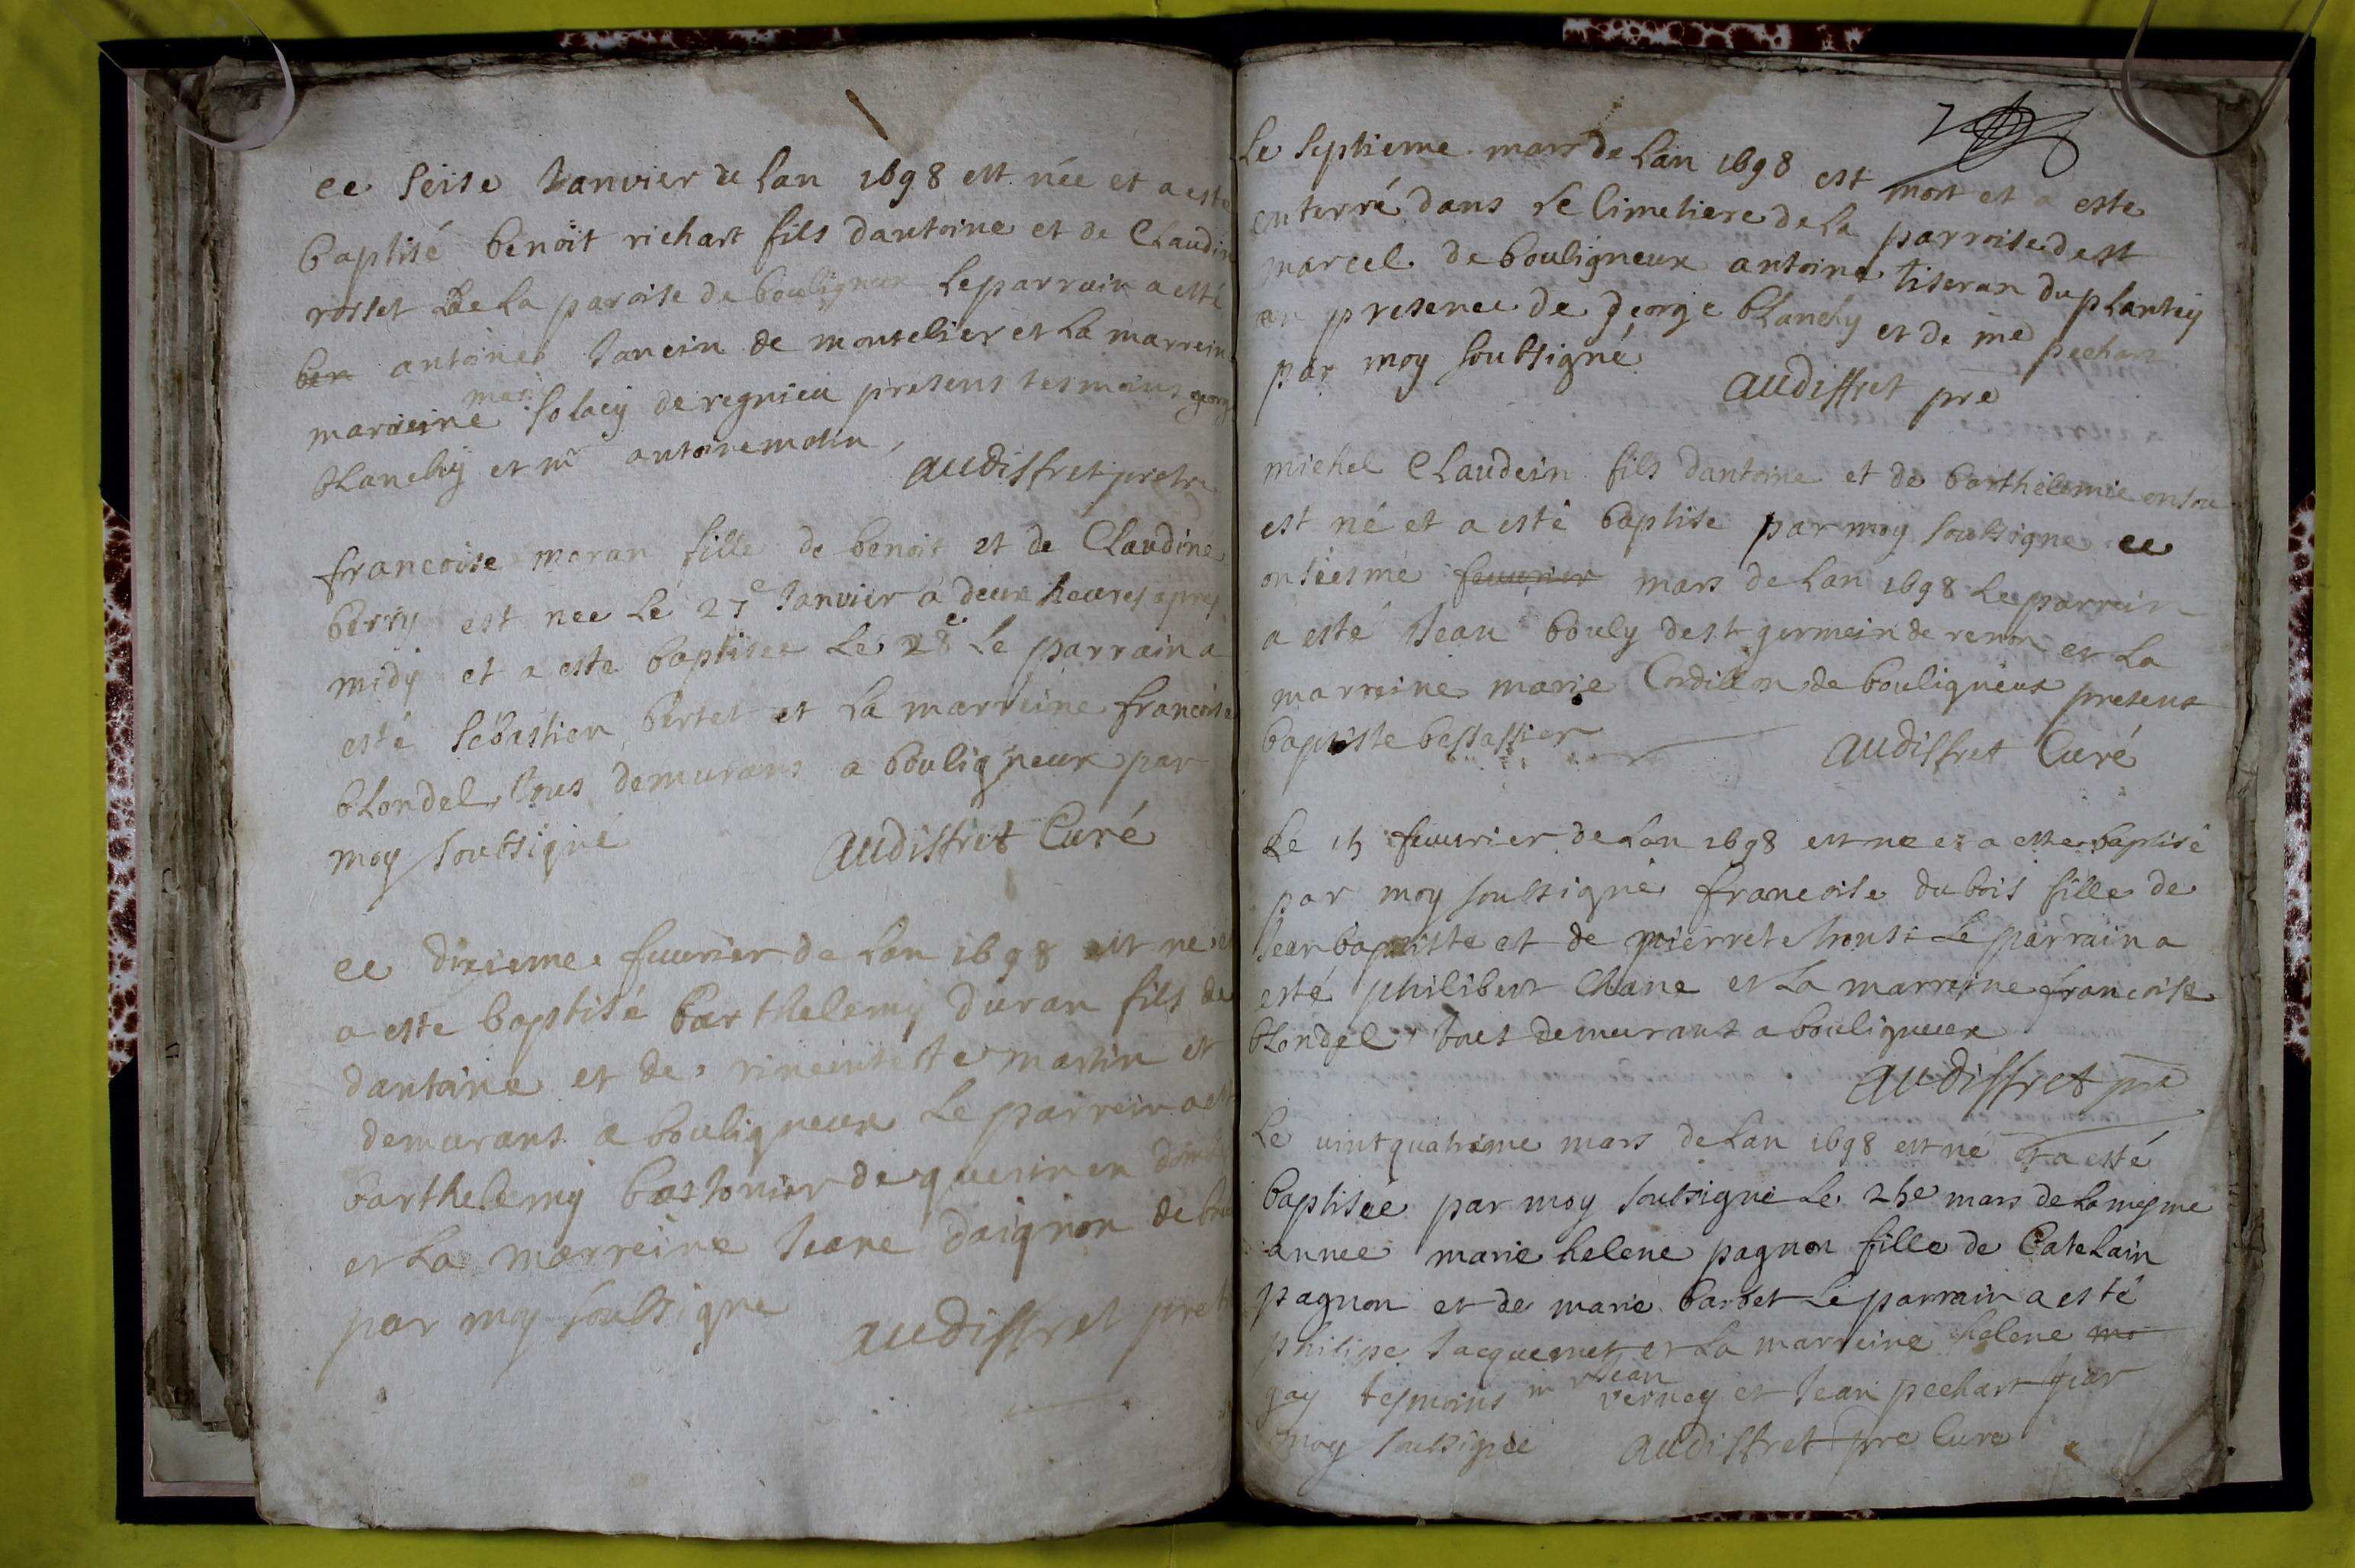 ce seise Janvier de lan 1698 est née et a este
baptisé benoit richart fils dantoine et de Claudin
rosset de la paroise de bouligneux le parrain a esté
ben antoine Jancin de montelier et la marrein
marreine marie solaiy de regnieu presens tesmoins george
blanchy et mr antoine molin
audiffret pretre
francoise moran fille de benoit et de Claudine
berry est nee le 27e Janvier a deux heures apres
midy et a este baptisee le 28e le parrain a
esté sebastien bertet et la marreine francoise
blondel tous demurans a bouligneux par
moy soubsigné
audiffret Curé
ce dixieme feuurier de lan 1698 est ne et
a este baptisé barthelemy duran fils de
dantoine et de martin et
demurans a bouligneux le parrein a est
barthelemy bastonier de en
et la marreine Jeane daignon de
par moy soubsigne
audiffret pret
Le septieme mars de lan 1698 est mort et a este
enterré dans le simetiere de la parroise de st
marcel de bouligneux antoine tiseran du plantey
en presence de george blanchy et de me pechart
par moy soubsigné
audiffret pre
michel Claudein fils dantoine et de barthelemie
est né et a esté baptise par moy soubsigne ce
onsiesme feuurier mars de lan 1698 le parrein
a esté Jean bouly de st germein de renon et la
marreine marie Cordillon de bouligneux presens
baptiste bessassier
audiffret Curé
Le 15 feuurier de lan 1698 est nee et a este baptisé
par moy soubsigné francoise du bois fille de
Jean baptiste et de pierrete le parrain a
esté philibert Chane et la marreine francoise
blondel tous demurans a bouligneux
audiffret pre
Le uint quatrieme mars de lan 1698 est né et a esté
baptisée par moy soubsigné le 25e mars de la mesme
annee marie helene pagnon fille de Catelain
pagnon et de marie barbet le parrain a esté
philipe Jacquemet et la marreine helene mo
gay tesmoins mr Jean verney et Jean pechart par
moy soubsigné audiffret pre Curé